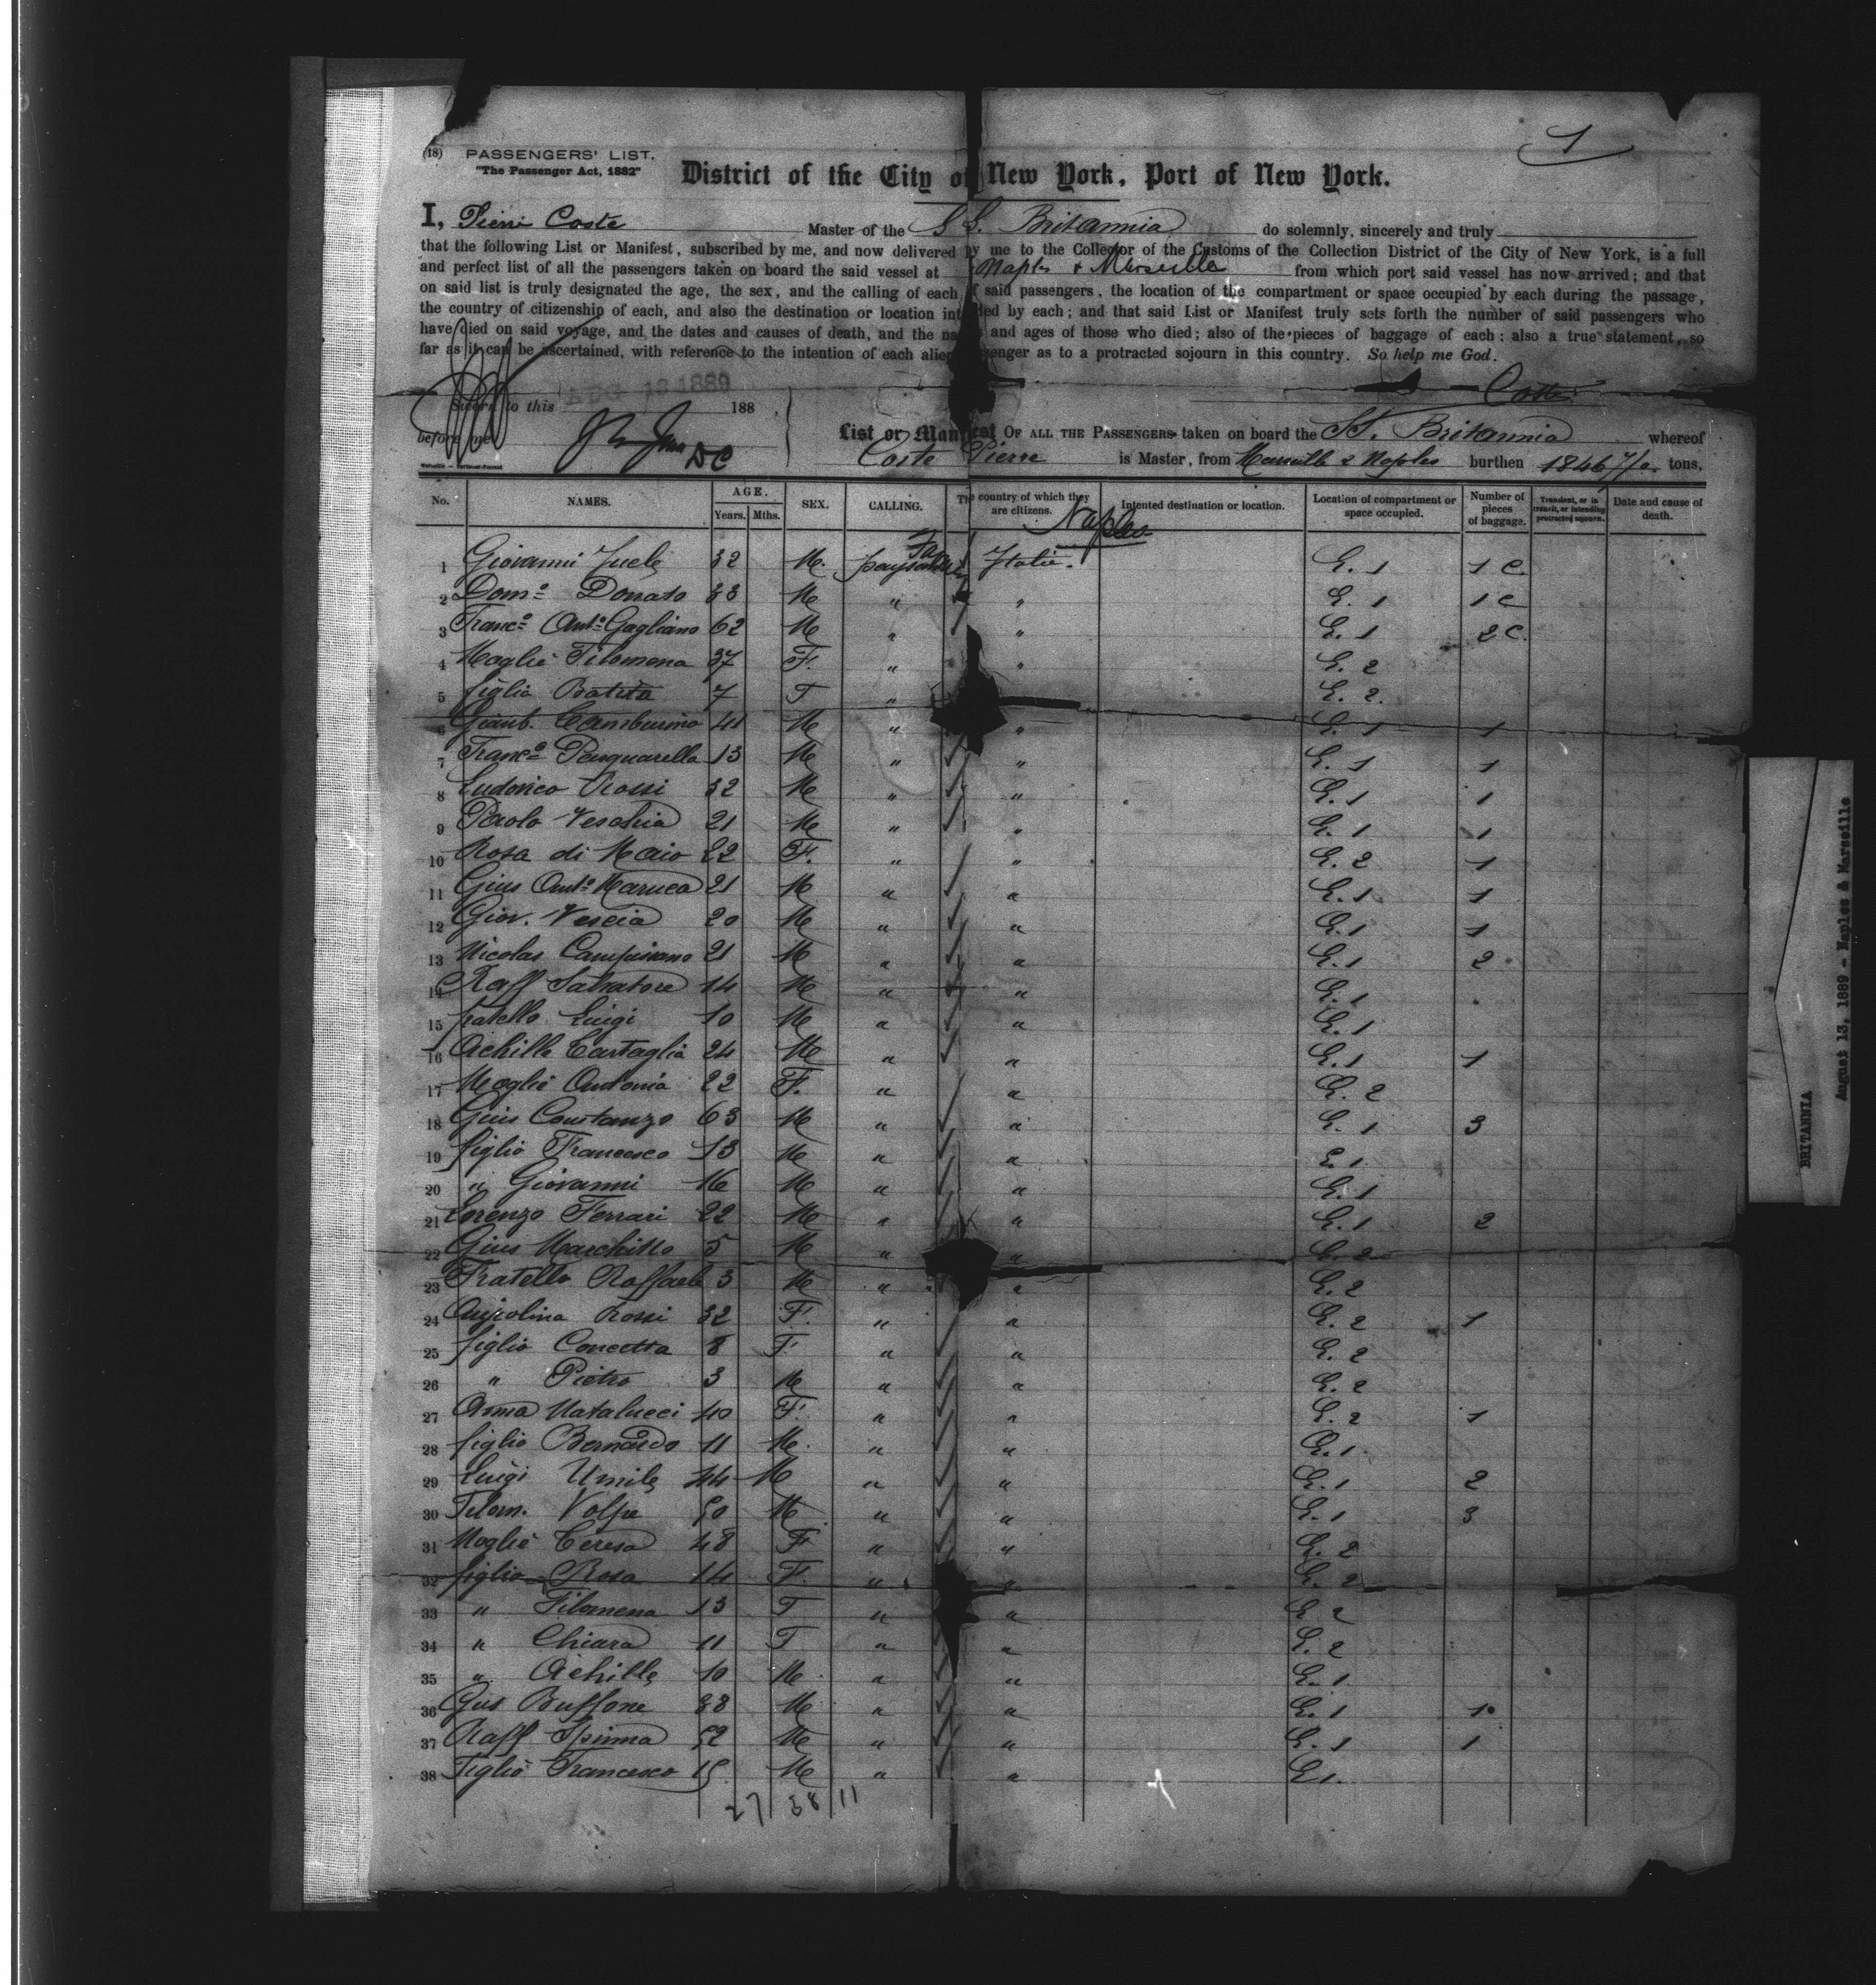 1
(18) PASSENGERS' LIST.
"The Passenger Act, 1882"
District of the City of New York, Port of New York.
I, Pierre Coste Master of the S S. Britannia do solemnly, sincerely and truly
that the following List or Manifest, subscribed by me, and now delivered by me to the Collector of the Customs of the Collection District of the City of New York, is a full
and perfect list of all the passengers taken on board the said vessel at Naples & Marseille from which port said vessel has now arrived; and that
on said list is truly designated the age, the sex, and the calling of each of said passengers, the location of the compartment or space occupied by each during the passage,
the country of citizenship of each, and also the destination or location intended by each; and that said List or Manifest truly sets forth the number of said passengers who
have died on said voyage, and the dates and causes of death, and the names and ages of those who died; also of the pieces of baggage of each; also a true statement, so
far as it can be ascertained, with reference to the intention of each alien passenger as to a protracted sojourn in this country. So help me God.
Coste
Sworn to this AUG 13 1889 188
before me
List or Manifest OF ALL THE PASSENGERS taken on board the SS. Britannia whereof
Coste Pierre is Master, from Marseille & Naples burthen 1846 tons,
No. NAMES. AGE. Years. Mths. SEX. CALLING. The country of which they are citizens. Intented destination or location. Location of compartment or space occupied. Number of pieces of baggage. Transient, or in transit, or intending protracted sojourn. Date and cause of death.
Naples
1 Giovanni 32 M. Italie. E. 1 1 C.
2 Dom° Donato 33 M " " E. 1 1 C
3 Franc° Ant° Gagliano 62 M " " E. 1 2 C.
4 Moglie Filomena 37 F. " " E. 2
5 figlia 7 F " E. 2.
6 Giamb. Tamburino 41 M " " E. 1 1
7 Franc° 13 M " " E. 1 1
8 Ludovico Rossi 32 M " " E. 1 1
9 Paolo 21 M " " E. 1 1
10 Rosa di Maio 22 F. " " E. 2 1
11 Gius Ant° Maruca 21 M " " E. 1 1
12 Giov. Vescia 20 M " " E. 1 1
13 Nicolas Campisano 21 M " " E. 1 2
14 Raff Salvatore 14 M " " E. 1
15 fratello Luigi 10 M " " E. 1
16 Achille Tartaglia 24 M " " E. 1 1
17 Moglie Antonia 22 F. " " E. 2
18 Gius Constanzo 63 M " " E. 1 3
19 figlio Francesco 13 M " " E. 1
20 " Giovanni 16 M " " E. 1
21 Lorenzo Ferrari 22 M " " E. 1 2
22 Gius Marchitto 5 M " " E. 2
23 Fratello Raffaele 3 M " " E. 2
24 Rossi 32 F. " " E. 2 1
25 figlia Concetta 8 F. " " E. 2
26 " Pietro 3 M " " E. 2
27 Anna Natalucci 40 F. " " E. 2 1
28 figlio Bernardo 11 M. " " E. 1
29 Luigi Umile 44 M " " E. 1 2
30 Filom. Volpe 50 M " " E. 1 3
31 Moglie Teresa 48 F " " E. 2
32 figlia Rosa 14 F. " " E. 2
33 " Filomena 13 F " " E. 2
34 " Chiara 11 F " " E. 2
35 " Achille 10 M. " " E. 1
36 Gus Buffone 38 M " " E. 1 1
37 Raff Spinna 52 M " " E. 1 1
38 Figlio Francesco 15 M " " E 1.
27 38 11
BRITANNIA
August 13, 1889 - Naples & Marseille